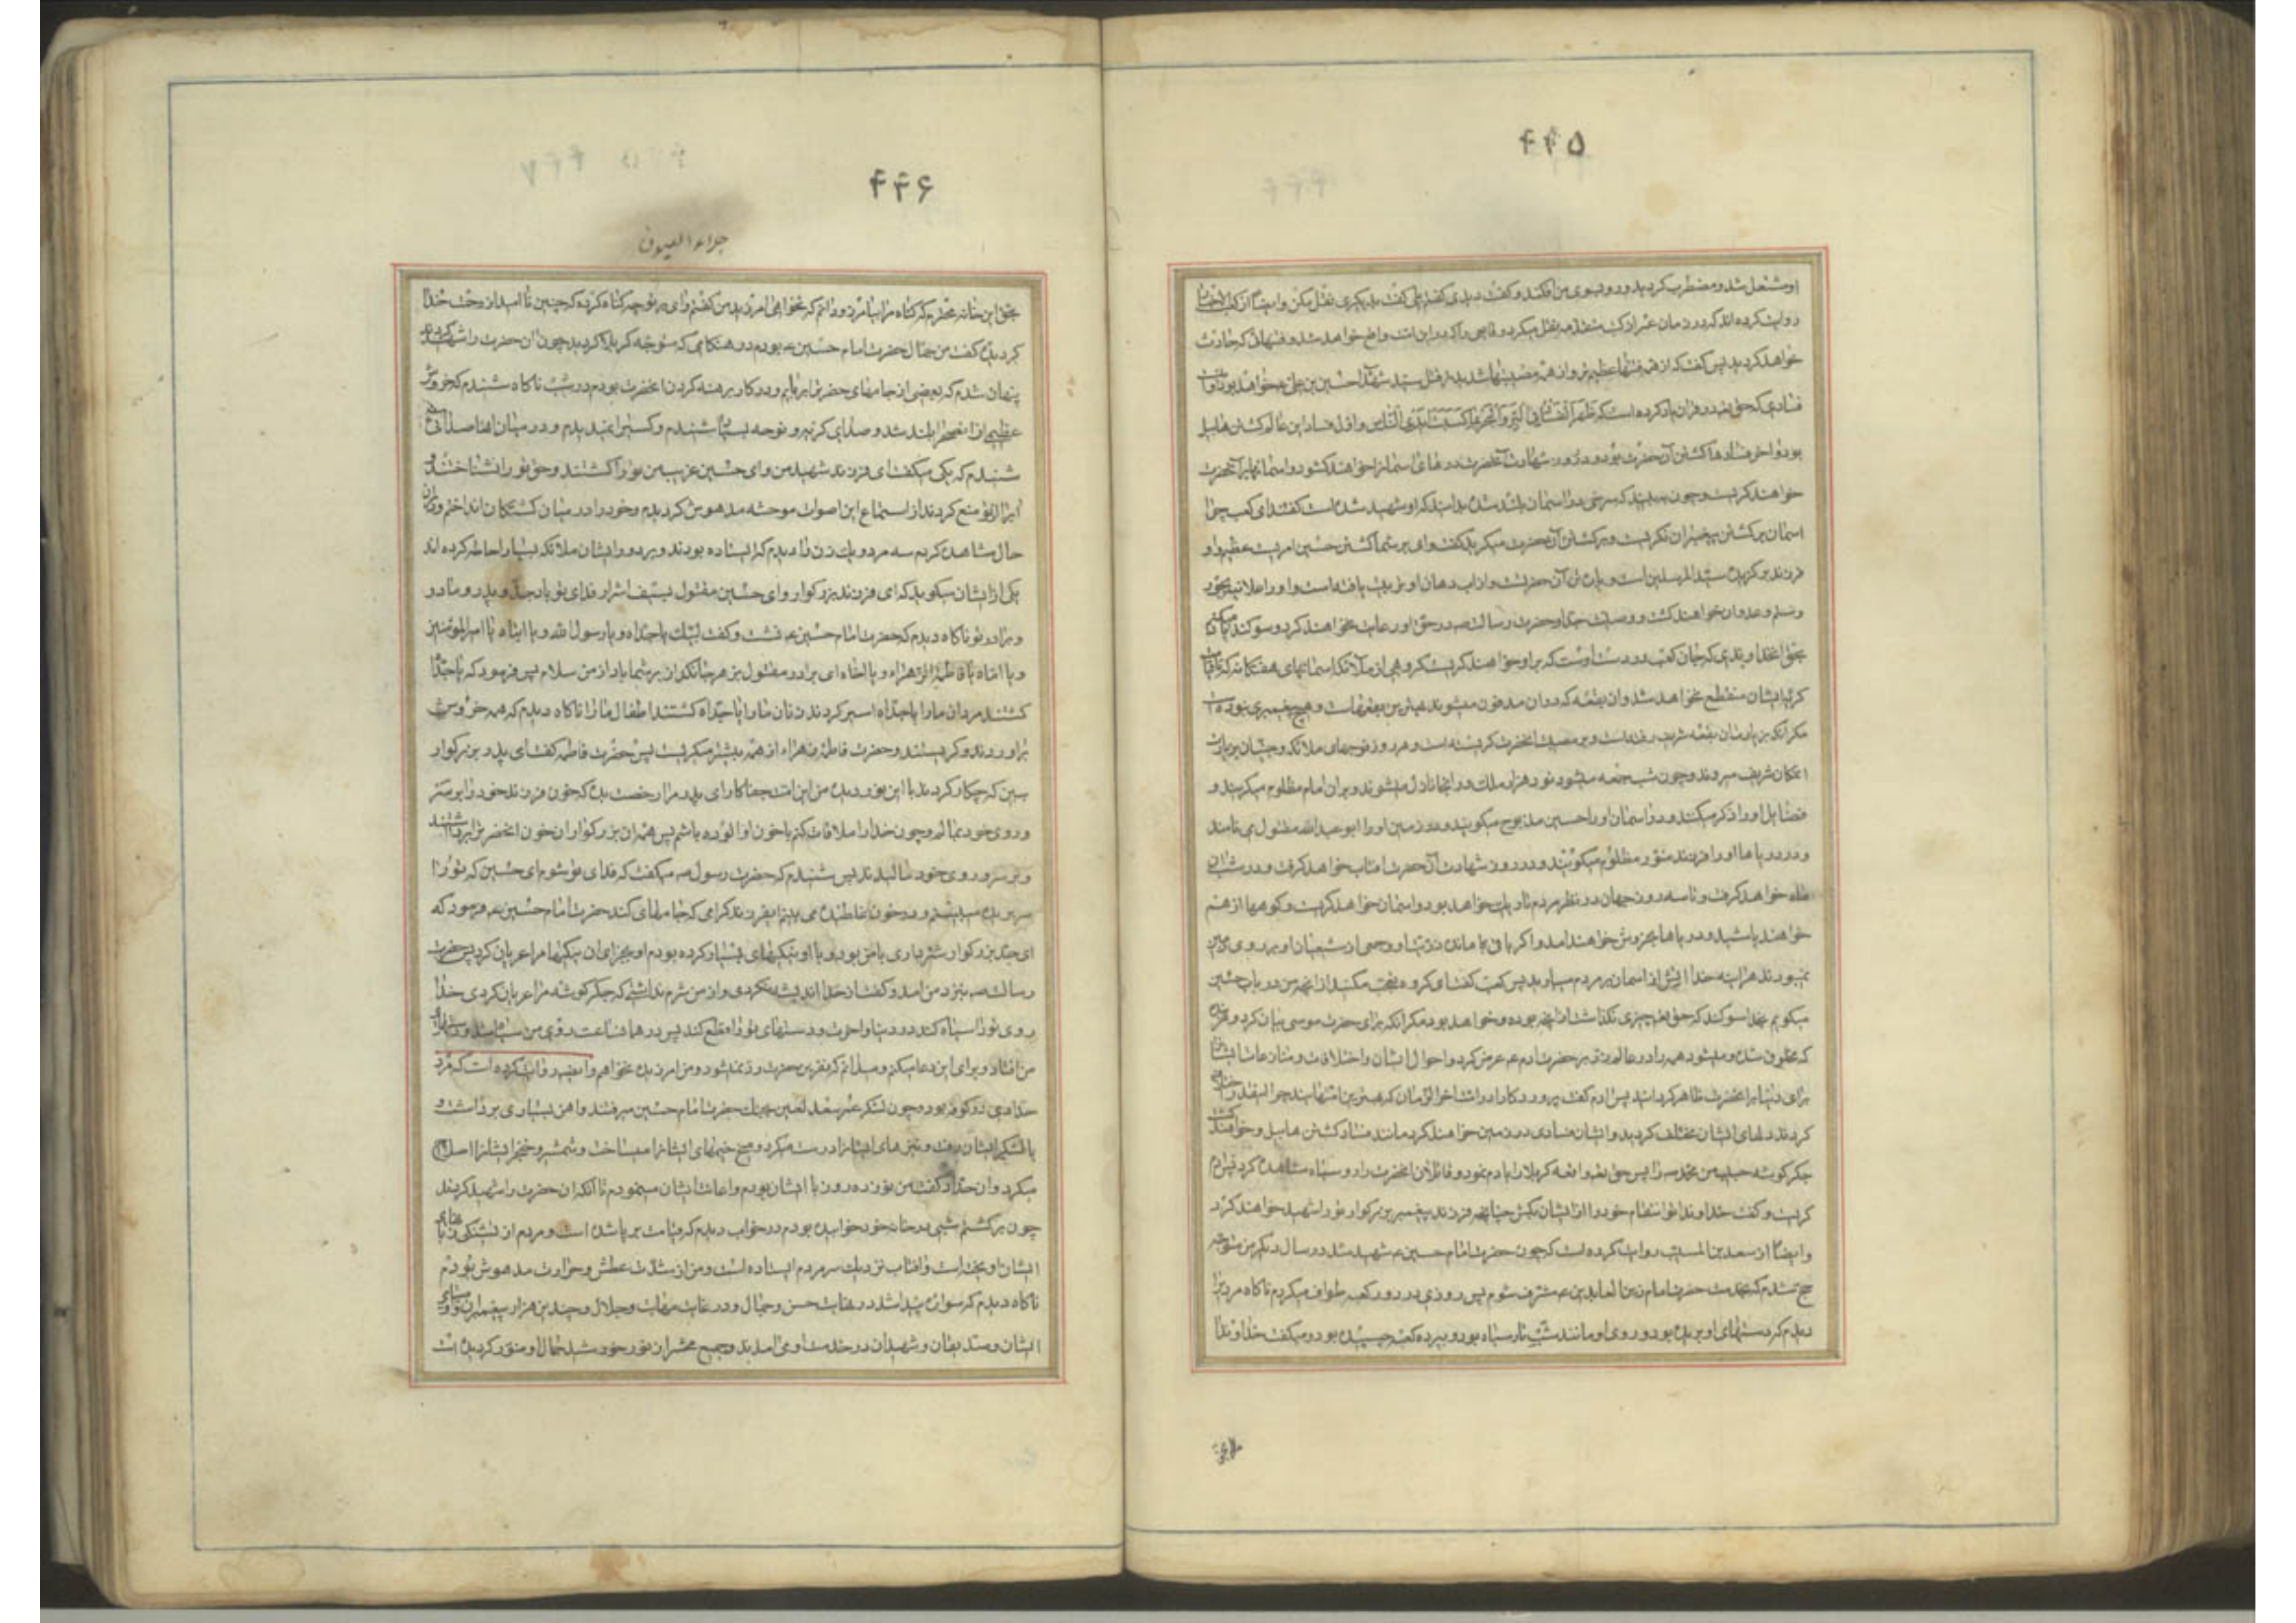 ۴۴۵
او مشتعل شد و مضطرب کردید و رو بسوی من افکند و کفت دیدی کفتم بلی کفت بدیکری نقل مکن و ایضا از کعب الاحبار
روایت کرده اند که در زمان عمر از کتب متقدمه نقل میکرد و قایعی را که در این امت واقع خواهد شد و فتنهائی که حادث
خواهد کردید پس کفت که از همه فتنها عظیم تر و از همه مصیبتها شدیدتر قتل سید شهدا حسین بن علی ع خواهد بود و اینست
فسادی که حق تعالی در قران یاد کرده است که ظهر الفساد فی البر و البحر بما کسبت ایدی الناس و اول فساد این عالم کشتن هابیل
بود و اخر فسادها کشتن آن حضرت بود و در روز شهادت آنحضرت درهای اسمانرا خواهند کشود و اسمانها بر آنحضرت
خواهند کریست و چون ببینید که سرخی در اسمان بلند شد بدانید که او شهید شده است کفتند ای کعب چرا
اسمان بر کشتن پیغمبران نکریست و بر کشتن آن حضرت میکرید کفت وای بر شما کشتن حسین امریست عظیم و او
فرزند برکزیده سید المرسلین است و پاره تن آن حضرت و از آب دهان او تربیت یافته است و او را علانیه بجور
و ستم و عدوان خواهند کشت و وصیت جد او حضرت رسالت ص در حق او رعایت نخواهند کرد و سوکند یاد میکنم
بحق انخداوندی که جان کعب در دست اوست که بر او خواهند کریست کروهی از ملائکه اسمانهای هفتکانه که تا قیامت
کریه ایشان منقطع نخواهد شد و ان بقعه که در ان مدفون میشوند بهترین بقعهاست و هیچ پیغمبری نبوده است
مکر انکه بزیارت ان بقعه شریف رفته است و بر مصیبت انحضرت کریسته است و هر روز فوجهای ملائکه و جنیان بزیارت
انمکان شریف میروند و چون شب جمعه میشود نود هزار ملک در انجا نازل میشوند و بر ان امام مظلوم میکریند و
فضایل او را ذکر میکنند و در اسمان او را حسین مذبوح میکویند و در زمین او را ابو عبد الله مقتول می نامند
و در دریاها او را فرزند منور مظلوم میکویند و در روز شهادت آن حضرت افتاب خواهد کرفت و در شب ان
ماه خواهد کرفت و تا سه روز جهان در نظر مردم تاریک خواهد بود و اسمان خواهد کریست و کوهها از هم
خواهند پاشید و دریاها بخروش خواهند امد و اکر باقی مانده ذریت او و جمعی از شیعیان او بر روی زمین
نمیبودند هراینه خدا اتش از اسمان بر مردم میبارید پس کعب کفت ای کروه تعجب مکنید از انچه من در باب حسین
میکویم بخدا سوکند که حق تعالی چیزی نکذاشت از انچه بوده و خواهد بود مکر انکه برای حضرت موسی بیان کرد و هر بنده
که مخلوق شده و میشود همه را در عالم ذر بر حضرت ادم ع عرض کرد و احوال ایشان و اختلافات و منازعات ایشان
برای دنیا بر انحضرت ظاهر کردانید پس ادم کفت پروردکارا در امت اخر الزمان که بهترین امتهایند چرا اینقدر اختلاف
کردند دلهای ایشان مختلف کردید و ایشان فسادی در زمین خواهند کرد مانند فساد کشتن هابیل و خواهند کشت
جکرکوشه حبیب من محمد ص را پس حق تعالی واقعه کربلا را بادم نمود و قاتلان انحضرت را رو سیاه مشاهده کرد پس ادم
کریست و کفت خداوندا تو انتقام خود را از ایشان بکش چنانچه فرزند پیغمبر بزرکوار تو را شهید خواهند کرد
و ایضا از سعد بن المسیب روایت کرده است که چون حضرت امام حسین ع شهید شد در سال دیکر من متوجه
حج شدم که بخدمت حضرت امام زین العابدین ع مشرف شوم پس روزی در دور کعبه طواف میکردم ناکاه مردی را
دیدم که دستهای او بریده بود و روی او مانند شب تار سیاه بود و بپرده کعبه چسبیده بود و میکفت خداوندا
۴۴۶
جلاء العیون
بحق این خانه محترم که کناه مرا بیامرز و دانم که نخواهی امرزید من کفتم وای بر تو چه کناه کرده که چنین نا امید از رحمت خدا
کردیده کفت من جمال حضرت امام حسین ع بودم در هنکامی که متوجه کربلا کردید چون ان حضرت را شهید کردند
پنهان شدم که بعضی از جامهای حضرت را بربایم و در کار برهنه کردن انحضرت بودم در شب ناکاه شنیدم که خروش
عظیمی از ان صحرا بلند شد و صدای کریه و نوحه بسیار شنیدم و کسی را نمیدیدم و در میان انها صدائی
شنیدم که یکی میکفت ای فرزند شهید من و ای حسین غریب من تو را کشتند و حق تو را نشناختند و
اب را از تو منع کردند از استماع این اصوات موحشه مدهوش کردیدم و خود را در میان کشتکان انداختم و در ان
حال مشاهده کردم سه مرد و یک زن را دیدم که ایستاده بودند و بر دور ایشان ملائکه بسیار احاطه کرده اند
یکی از ایشان میکوید که ای فرزند بزرکوار و ای حسین مقتول بسیف اشرار فدای تو باد جد و پدر و مادر
و برادر تو ناکاه دیدم که حضرت امام حسین ع نشست و کفت لبیک یا جداه و یا رسول الله و یا ابتاه یا امیر المومنین
و یا اماه یا فاطمة الزهراء و یا اخاه ای برادر مقتول بزهر جانکداز بر شما باد از من سلام پس فرمود که یا جداه
کشتند مردان ما را یا جداه اسیر کردند زنان ما را یا جداه کشتند اطفال ما را ناکاه دیدم که همه خروش
براوردند و کریستند و حضرت فاطمه زهراء از همه بیشتر میکریست پس حضرت فاطمه کفت ای پدر بزرکوار
ببین که چکار کردند با این نور دیده من این امت جفاکار ای پدر مرا رخصت بده که خون فرزند خود را بر سر
و روی خود بمالم و چون خدا را ملاقات کنم با خون او الوده باشم پس همه ان بزرکواران خون انحضرت را برداشتند
و بر سر و روی خود مالیدند پس شنیدم که حضرت رسول ص میکفت که فدای تو شوم ای حسین که تو را
سر بریده میبینم و در خون غلطیده می بینم ای فرزند کرامی که جامهای کند حضرت امام حسین ع فرمود که
ای جد بزرکوار شترداری با من بود و با او نیکیهای بسیار کرده بودم او بجزای ان نیکیها مرا عریان کرد پس حضرت
رسالت ص بنزد من امد و کفت از خدا اندیشه نکردی و از من شرم نداشتی که جکرکوشه مرا عریان کردی خدا
روی تو را سیاه کند در دنیا و اخرت و دستهای تو را قطع کند پس در همان ساعت روی من سیاه شد و دستهای
من افتاد و برای این دعا میکنم و میدانم که نفرین حضرت رد نمیشود و من امرزیده نخواهم و ایضا روایت کرده است که مرد
حدادی در کوفه بود و چون لشکر عمر سعد لعین بجنک حضرت امام حسین میرفتند و اهن بسیاری برداشت و
با لشکر ایشان رفت و نیزهای ایشانرا درست میکرد و میخ خیمهای ایشانرا میساخت و شمشیر و خنجر ایشانرا اصلاح
میکرد و ان حداد کفت من نوزده روز با ایشان بودم و اعانت ایشان مینمودم تا انکه ان حضرت را شهید کردند
چون برکشتم شبی در خانه خود خوابیده بودم در خواب دیدم که قیامت برپا شده است و مردم از تشنکی زبانهای
ایشان اویخته است و افتاب نزدیک سر مردم ایستاده است و من از شدت عطش و حرارت مدهوش بودم
ناکاه دیدم که سواری پیدا شد در نهایت حسن و جمال و در غایت مهابت و جلال و چندین هزار پیغمبران و اوصیای
ایشان و صدیقان و شهیدان در خدمت او می امدند و جمیع محشر از نور خورشید جمال او منور کردیده است